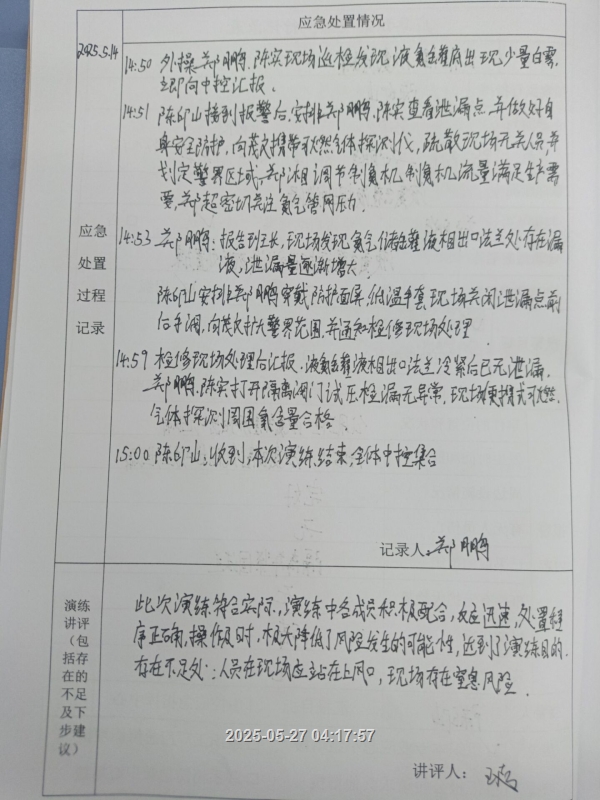 应急处置情况
2025.5.14
14:50 外操郑鹏鹏、陈实现场巡检发现液氮储罐底出现少量白雾,
立即向中控汇报。
14:51 陈邱山接到报警后,安排郑鹏鹏、陈实查看泄漏点,并做好自
身安全防护,向茂文携带可燃气体探测仪,疏散现场无关人员并
划定警界区域,郑沐相调节制氮机,制氮机流量满足生产需
要,郑超密切关注氮气管网压力.
应急
处置
过程
记录
14:53 郑鹏鹏:报告班长,现场发现氮气储罐液相出口法兰处存在漏
液,泄漏量逐渐增大.
陈邱山安排郑鹏鹏穿戴防护面屏,低温手套现场关闭泄漏点前
后手阀,向茂文扩大警界范围,并通知检修现场处理.
14:59 检修现场处理后汇报,液氮储罐液相出口法兰冷紧后已无泄漏,
郑鹏鹏、陈实打开隔离阀门试压检漏无异常,现场便携式可燃
气体探测周围氧含量合格.
15:00 陈邱山:收到,本次演练结束,全体中控集合
记录人:郑鹏鹏
演练
讲评
(包
括存
在的
不足
及下
步建
议)
此次演练符合实际,演练中各成员积极配合,反应迅速,处置程
序正确,操作及时,极大降低了风险发生的可能性,达到了演练目的.
存在不足处:人员在现场应站在上风口,现场存在窒息风险.
2025-05-27 04:17:57
讲评人: